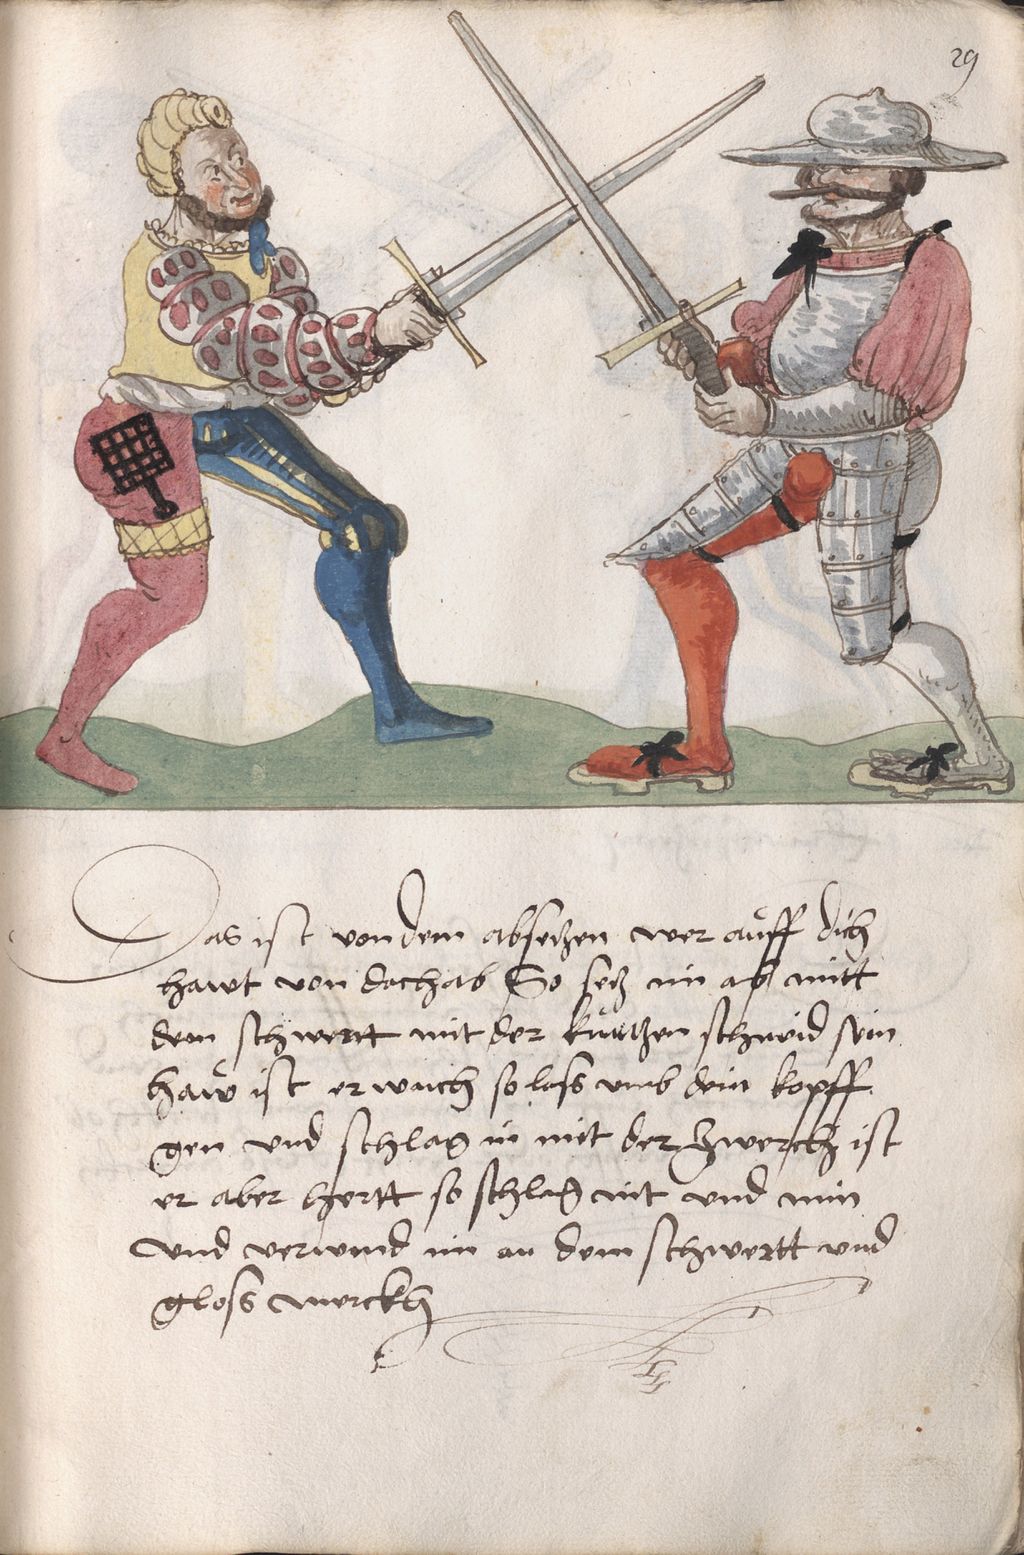 29
Das ist von dem absetzen wer auff dich
hawt von dach ab So setz im ab mitt
dem schwertt mit der kurtzen schneid sein
haw ist er waich so lass umb dein kopff
gen und schlag in mit der Zwerch ist
er aber hertt so schlag nit und nim
und verwind im an dem schwertt und
gloss merckh